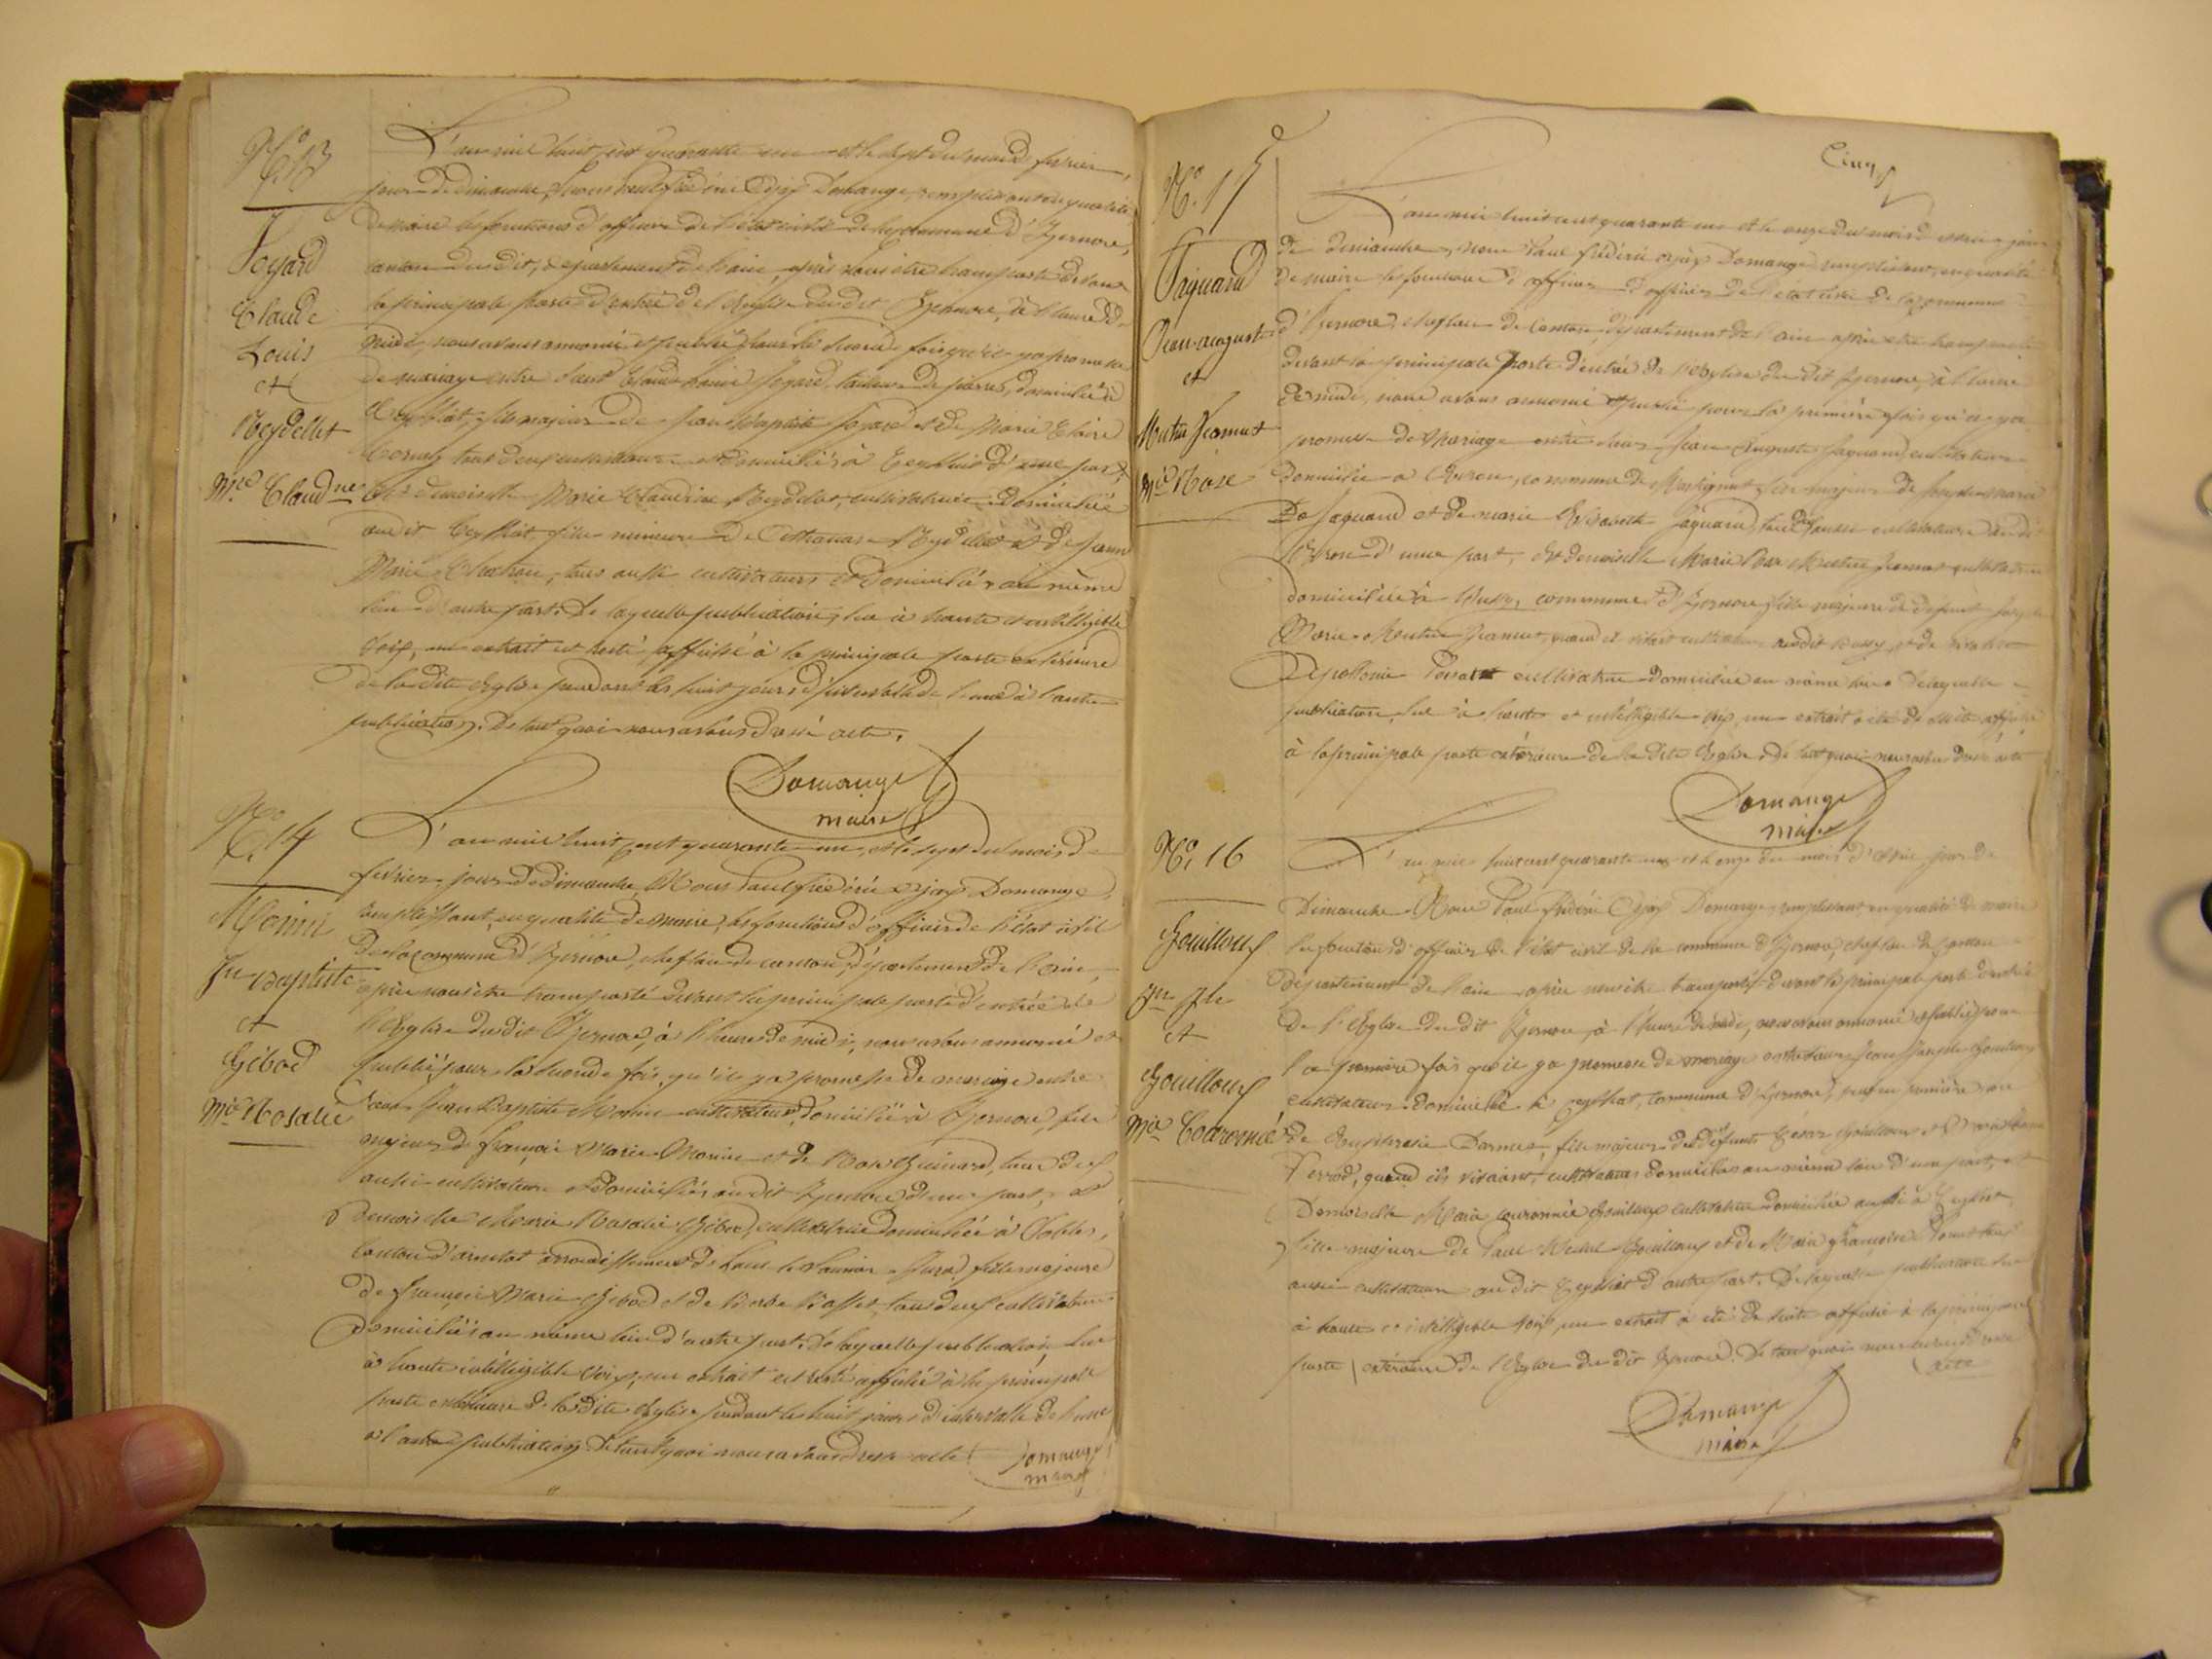 N.o 13
Joyard
Claude
Louis
et
Reydellet
M.ie Claud.ne
L'an mil huit cent quarante un et le sept du mois de fevrier,
jour de dimanche, Nous Paul frédéric Domange, remplissant en qualité
de maire les fonctions d'officier de l'état civil de la commune d'Izernore,
canton du dit, département de l'ain, après nous être transporté devant
la principale porte d'entrée de l'église du dit Izernore, à l'heure de
midi, nous avons annoncé et publié pour la seconde fois qu'il y a promesse
de mariage entre Claude Louis Joyard, tailleur de pierres, domicilié à
Ceyssiat, fils majeur de Jean Baptiste Joyard et de Marie Claire
tous deux cultivateurs et domiciliés à Ceyssiat d'une part,
Et demoiselle Marie Claudine Reydellet, cultivatrice domiciliée
au dit Ceyssiat fille mineure de Reydellet et de Jeanne
Marie tous aussi cultivateurs et domiciliés au même
lieu d'autre part. De laquelle publication, lue à haute et intelligible
voix, un extrait est resté affiché à la principale porte extérieure
de la dite église pendant les huit jours d'intervalle de l'une à l'autre
publication. De tout quoi nous avons dressé acte.
Domange
maire
N.o 14
Monin
Jn Baptiste
et
Gébod
M.ie Rosalie
L'an mil huit cent quarante un, et le sept du mois de
février, jour de dimanche, Nous Paul frédéric Domange,
remplissant, en qualité de maire, les fonctions d'officier de l'état civil
de la commune d'Izernore, chef lieu de canton, département de l'ain,
après nous être transporté devant la principale porte d'entrée de
l'église du dit Izernore, à l'heure de midi, nous avons annoncé et
publié, pour la seconde fois, qu'il y a promesse de mariage entre
Jean Baptiste Monin cultivateur, domicilié à Izernore, fils
majeur de françois Marie Monin et de Rose tous deux
aussi cultivateurs et domiciliés au dit Izernore d'une part, et
demoiselle Marie Rosalie Gébod, cultivatrice domiciliée à
Canton d'arinthod arrondissement de Lons le Saunier Jura, fille majeure
de françois Marie Gébod et de tous deux cultivateurs
domiciliés au même lieu d'autre part. De laquelle publication, lue
à haute intelligible voix, un extrait est resté affiché à la principale
porte extérieure de la dite église pendant les huit jours d'intervalle de l'une
à l'autre publication. De tout quoi nous avons dressé acte
Domange
maire
Cinq
N.o 15
Jaquand
Jean auguste
et
Jeannet
M.ie Rose
L'an mil huit cent quarante un et le onze du mois d'avril jour
de dimanche, nous Paul frédéric Domange remplissant, en qualité
de maire les fonctions d'officier d'officier de l'état civil de la commune
d'Izernore, chef lieu de canton, département de l'ain après être transporté
devant la principale porte d'entrée de l'église du dit Izernore, à l'heure
de midi, nous avons annoncé et publié pour la première fois qu'il y a
promesse de mariage entre Jean Auguste Jaquand, cultivateur
domicilié à commune de Martignat, fils majeur de Joseph marie
Jaquand et de marie Elisabeth Jaquand, tous deux aussi cultivateurs au dit
d'une part, Et demoiselle Marie Rose Jeannet cultivatrice
domiciliée à Bussy, commune d'Izernore fille majeure de défunt Joseph
Marie Jeannet, quand il vivait cultivateur au dit Bussy, et de
Apollonie cultivatrice domiciliée au même lieu. De laquelle
publication, lue à haute et intelligible voix, un extrait a été de suite affiché
à la principale porte extérieure de la dite église. De tout quoi nous avons dressé acte
Domange
maire
N.o 16
Gouilloux
Jn Jh
et
Gouilloux
M.ie Couronnée
L'an mil huit cent quarante un et le onze du mois d'avril jour de
Dimanche. Nous Paul frédéric Domange, remplissant en qualité de maire
les fonctions d'officier de l'état civil de la commune d'Izernore, chef lieu de canton
département de l'ain, après nous être transporté devant la principale porte d'entrée
de l'église du dit Izernore, à l'heure de midi, nous avons annoncé et publié pour
la première fois qu'il y a promesse de mariage entre Jean Joseph Gouilloux
cultivateur domicilié à Ceyssiat, commune d'Izernore, veuf en première
de Euphrasie Darmet, fils majeur de défunts Cesar Gouilloux et Marie
quand ils vivaient, cultivateurs domiciliés au même lieu d'une part, et
Demoiselle Marie couronnée Gouilloux cultivatrice domiciliée aussi à Ceyssiat,
fille majeure de Paul Gouilloux et de Marie françoise tous
aussi cultivateurs au dit Ceyssiat d'autre part. De laquelle publication lue
à haute et intelligible voix, un extrait a été de suite affiché à la principale
porte extérieure de l'église du dit Izernore. De tout quoi nous avons dressé
acte
Domange
maire